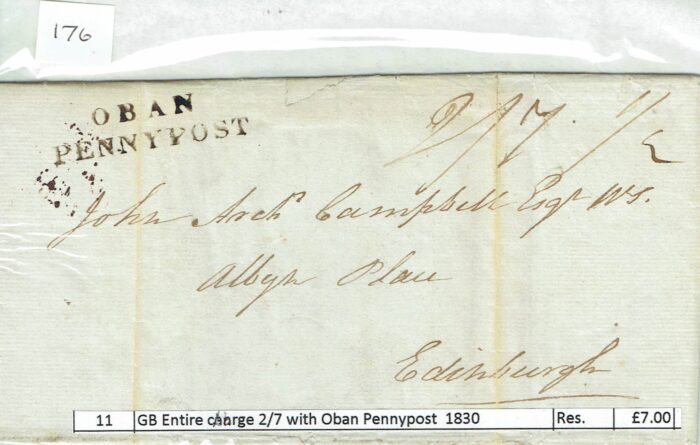 176
OBAN
PENNYPOST
2/7 1/2
John Archd Campbell Esqr WS.
Albyn Place
Edinburgh
11 GB Entire charge 2/7 with Oban Pennypost 1830 Res. £7.00